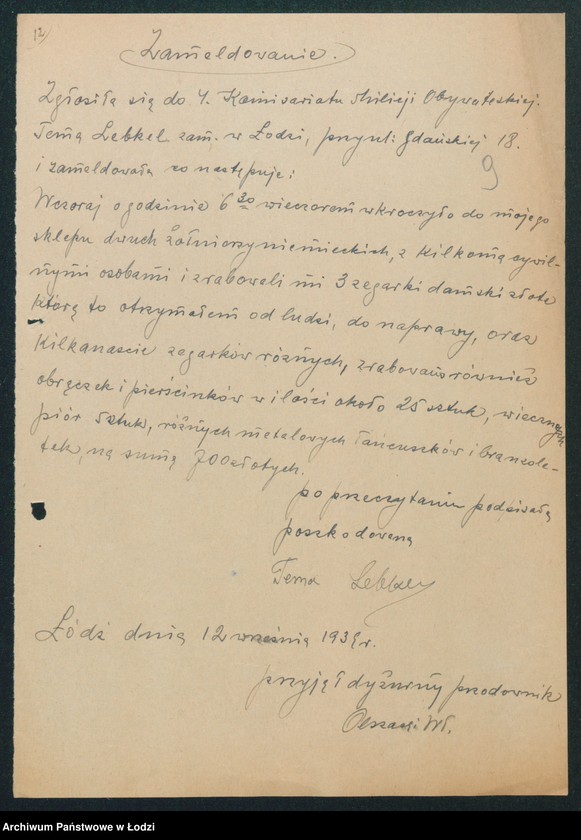 12)
Zameldowanie.
Zgłosiła się do 4. Komisariatu Milicji Obywatelskiej.
Tema Lebkel zam. w Łodzi, przy ul: Gdańskiej 18.
i zameldowała co następuje:
9
Wczoraj o godzinie 6 30 wieczorem wkroczyło do mojego
sklepu dwuch żołnierzy niemieckich, z kilkomą cywil-
nymi osobami i zrabowali mi 3 zegarki damski złote
którą to otrzymałem od ludzi, do naprawy, oraz
kilkanaście zegarków różnych, zrabowano również
obrączek i pierścinków w ilości około 25 sztuk, wiecznych
piór sztuk, różnych metalowych łańcuszków i branzole-
tek, na sumą 700 złotych.
po przeczytaniu podpisała
poszkodowaną
Tema
Łódź dnią 12 września 1939 r.
przyjął dyżurny przodownik
Wł.
Archiwum Państwowe w Łodzi